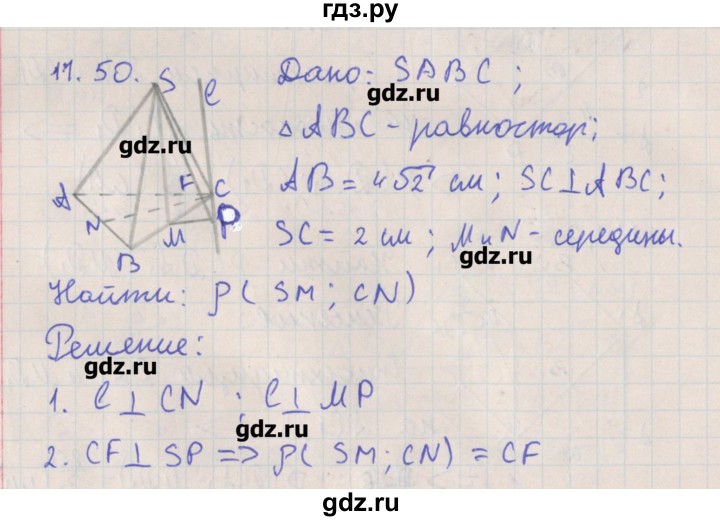 гдз.ру
17.50.
S
ℓ
A
F
C
N
M
P
B
Дано: SABC ;
△ ABC - равностор;
AB = 4√2 см ; SC ⊥ ABC ;
SC = 2 см ; M и N - середины.
Найти: ρ( SM ; CN)
Решение:
1. ℓ ⊥ CN ; ℓ ⊥ MP
2. CF ⊥ SP => ρ( SM ; CN) = CF
gdz.ru
gdz.ru
gdz.ru
gdz.ru
gdz.ru
gdz.ru